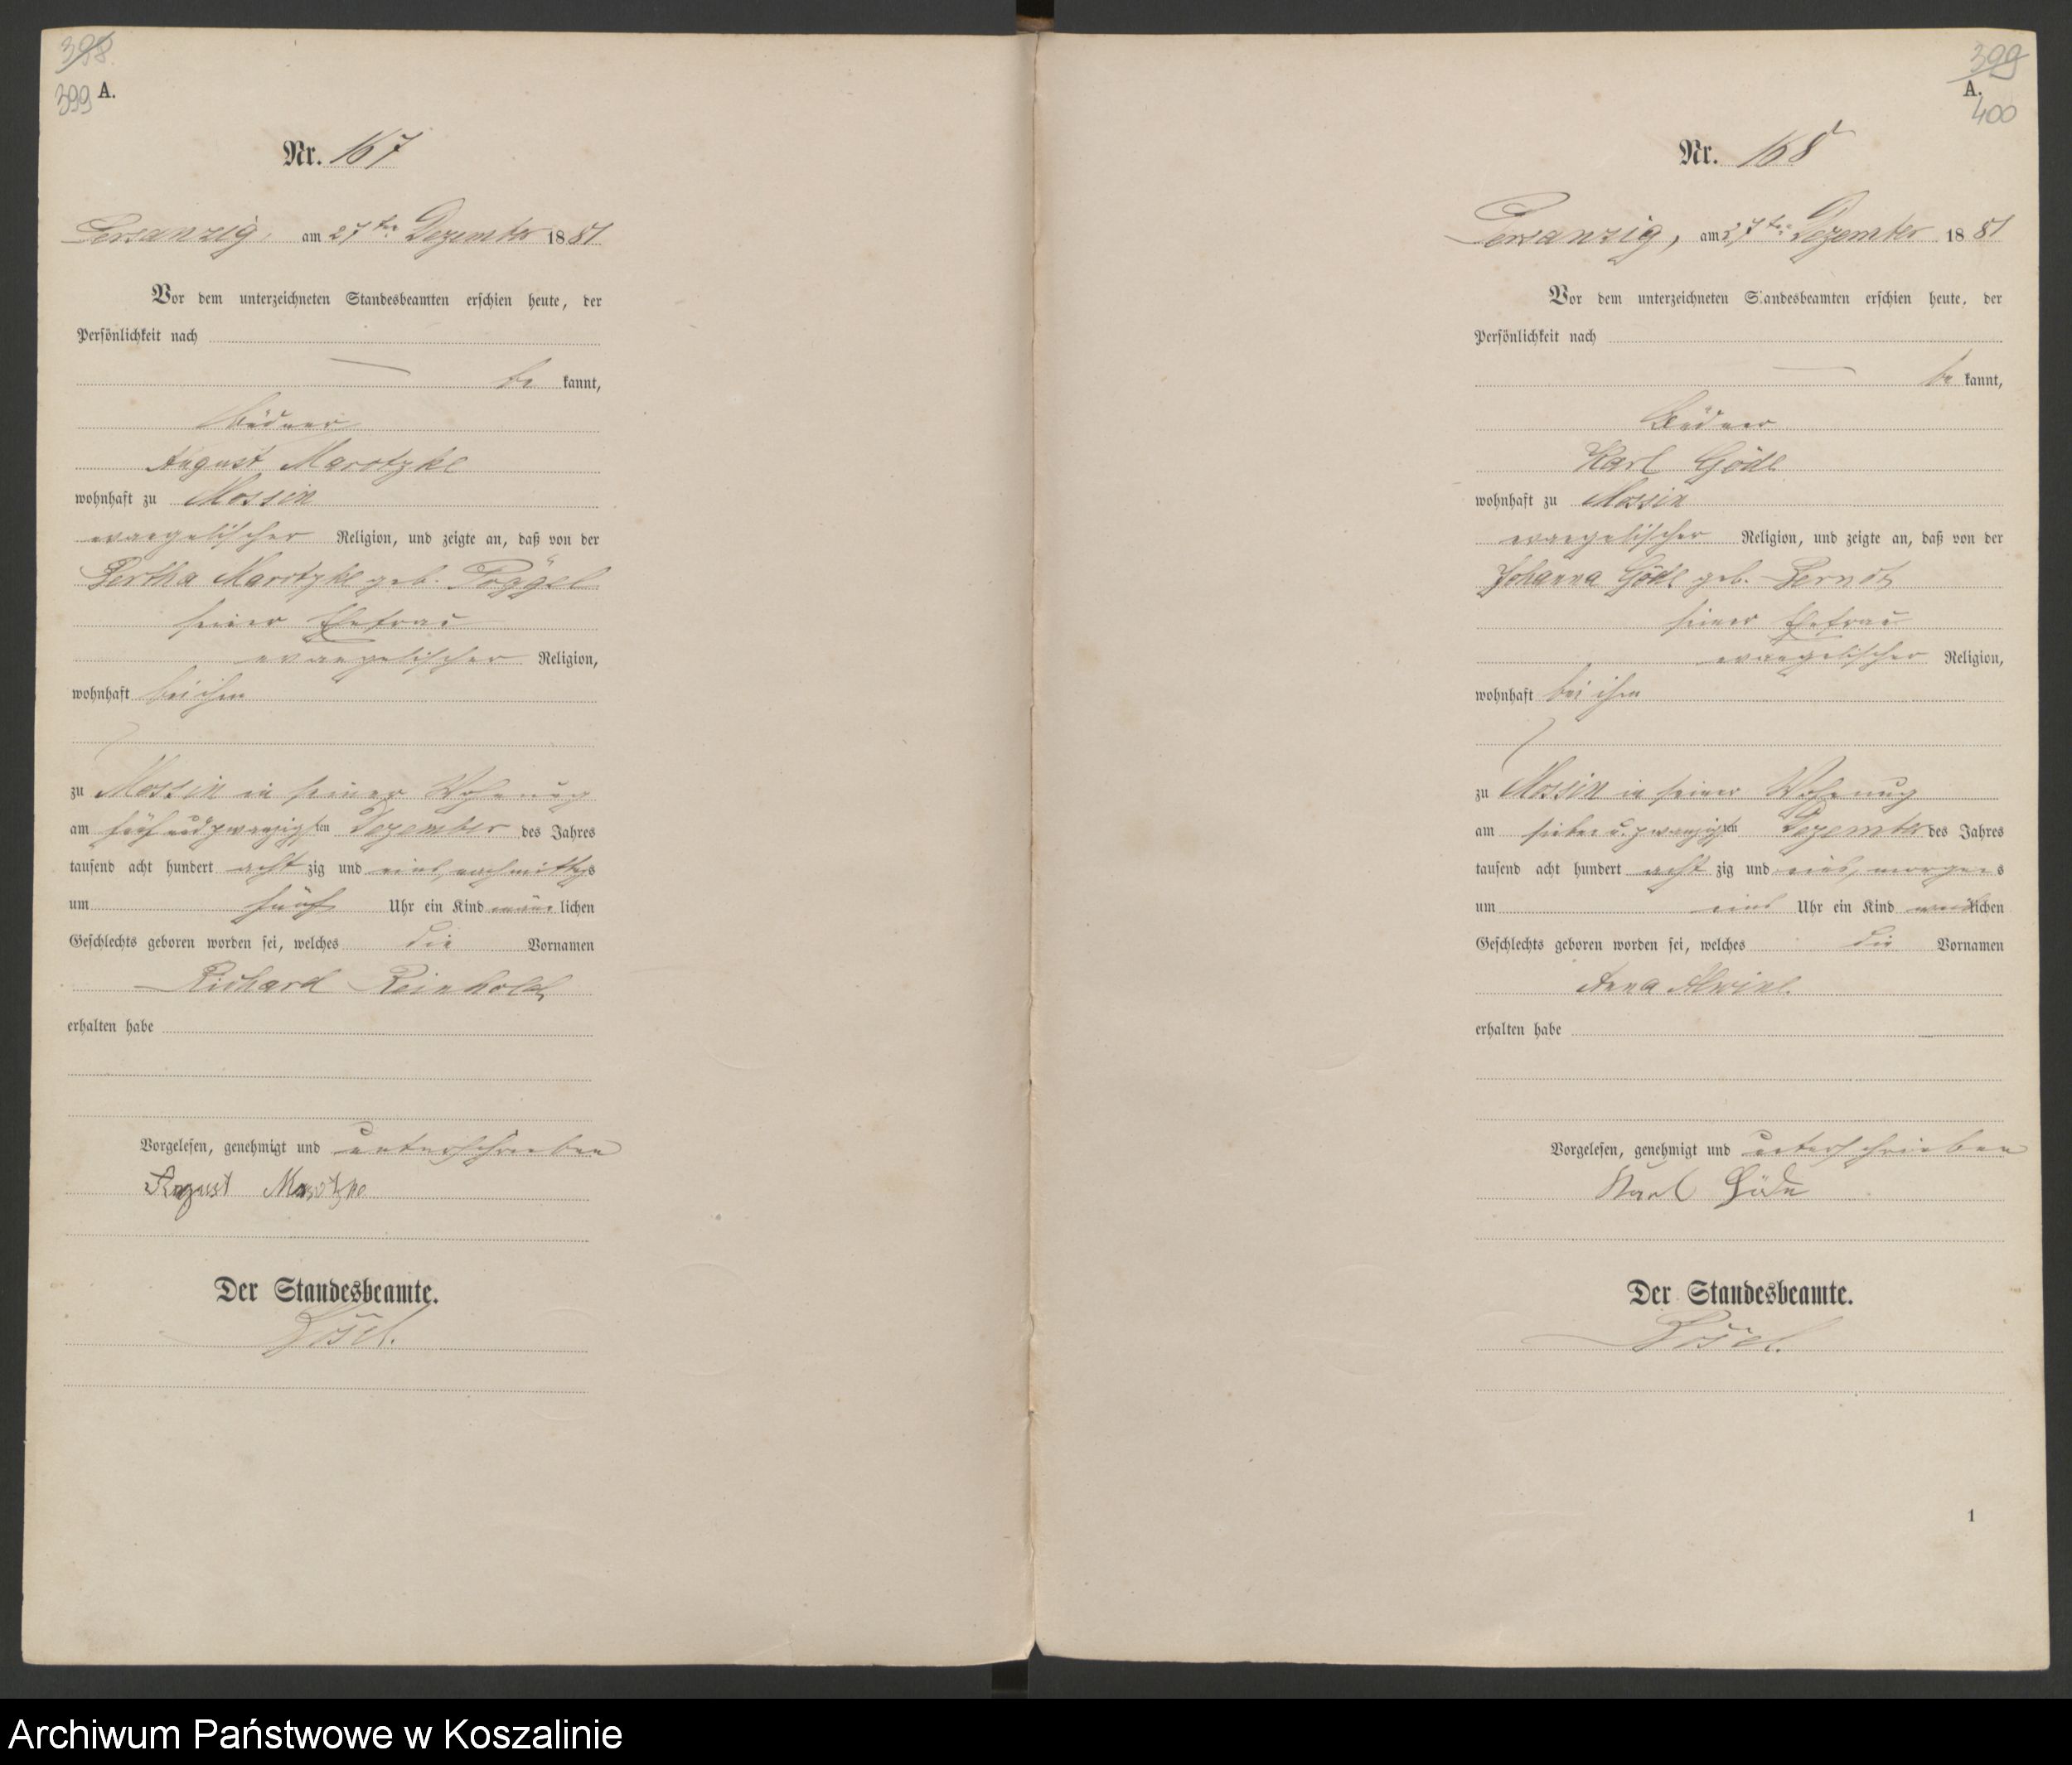 398.
399 A.
Nr. 167
Persanzig, am 27ten Dezember 1881
Vor dem unterzeichneten Standesbeamten erschien heute, der
Persönlichkeit nach
be kannt,
Büdner
August Marotzke
wohnhaft zu Mossin
evangelischer Religion, und zeigte an, daß von der
Bertha Marotzke geb.
seiner Ehefrau
evangelischer Religion,
wohnhaft bei ihm
zu Mossin in seiner Wohnung
am fünf und zwanzigsten Dezember des Jahres
tausend acht hundert acht zig und eins, nachmittags
um fünf Uhr ein Kind männ lichen
Geschlechts geboren worden sei, welches die Vornamen
Richard Reinhold
erhalten habe
Vorgelesen, genehmigt und unterschrieben
August Marotzke
Der Standesbeamte.
399
A.
400
Nr. 168
Persanzig, am 27ten Dezember 1881
Vor dem unterzeichneten Standesbeamten erschien heute, der
Persönlichkeit nach
be kannt,
Büdner
Karl Göde
wohnhaft zu Mossin
evangelischer Religion, und zeigte an, daß von der
Johanna Göde geb.
seiner Ehefrau
evangelischer Religion,
wohnhaft bei ihm
zu Mossin in seiner Wohnung
am sieben u. zwanzigsten Dezember des Jahres
tausend acht hundert acht zig und eins, morgens
um eins Uhr ein Kind weiblichen
Geschlechts geboren worden sei, welches die Vornamen
Anna Alwine.
erhalten habe
Vorgelesen, genehmigt und unterschrieben
Karl Göde
Der Standesbeamte.
1
Archiwum Państwowe w Koszalinie